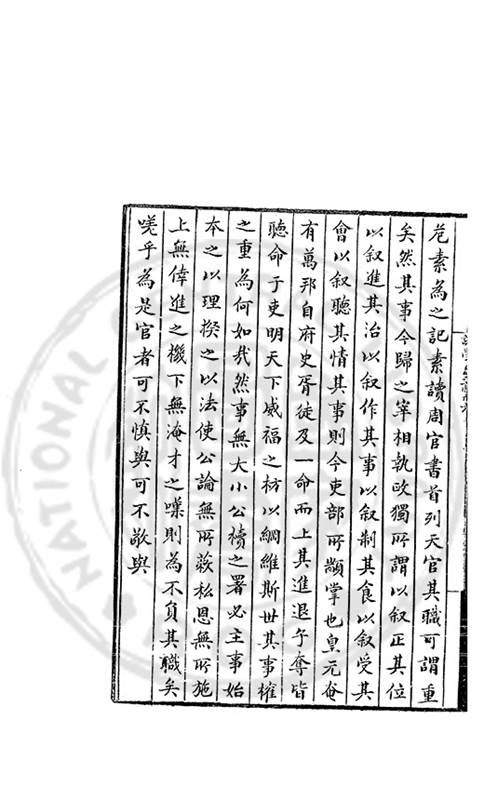 危素為之記素讀周官書首列天官其職可謂重
矣然其事今歸之宰相執政獨所謂以叙正其位
以叙進其治以叙作其事以叙制其食以叙受其
會以叙聽其情其事則今吏部所顓掌也皇元奄
有萬邦自府史胥徒及一命而上其進退予奪皆
聽命于吏明天下威福之枋以綱維斯世其事權
之重為何如哉然事無大小公牘之署必主事始
本之以理揆之以法使公論無所蔽私恩無所施
上無倖進之機下無淹才之嘆則為不負其職矣
嗟乎為是官者可不慎與可不敬與
NATIONAL